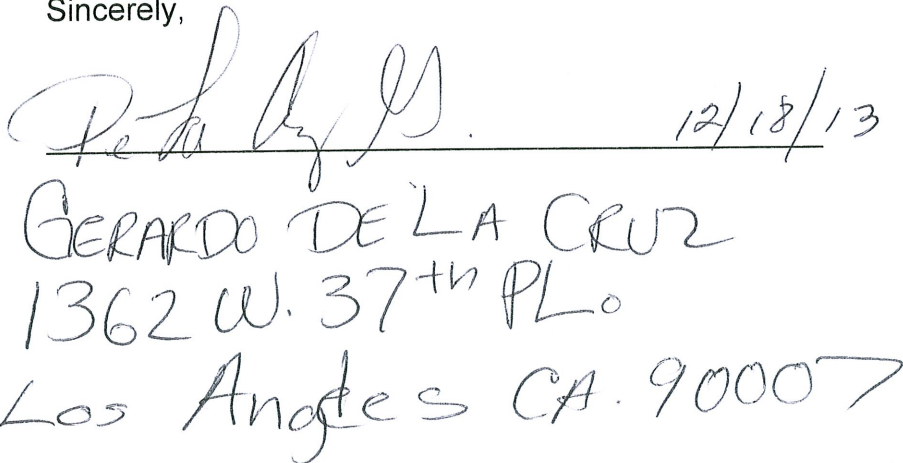 Sincerely,
De La Cruz G. 12/18/13
GERARDO DE LA CRUZ
1362 W. 37th PL.
Los Angeles CA. 90007